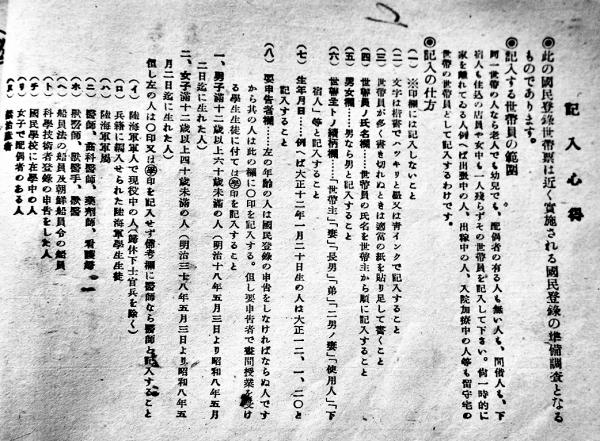 記入心得
◎此の國民登錄世帶票は近く實施される國民登錄の準備調査となる
ものであります。
◎記入する世帶員の範圍
同一世帶の人なら老人でも幼兒でも、配偶者の有る人も無い人も、間借人も、下
宿人も住込の店員や女中も一人殘らずその世帶員を記入して下さい。尙一時的に
家を離れてゐる人例へば出張中の人、出稼中の人、入院加療中の人等も留守宅の
世帶の世帶員として記入するわけです。
◎記入の仕方
(一) ※印欄には記入しないこと
(二) 文字は楷書でハツキリと墨又は靑インクで記入すること
(三) 世帶員が多く書き切れぬときは適當の紙を貼り足して書くこと
(四) 世帶員ノ氏名欄……世帶員の氏名を世帶主から順に記入すること
(五) 男女欄……男なら男と記入すること
(六) 世帶主トノ續柄欄……「世帶主」、「妻」、「長男」、「弟」、「二男ノ妻」、「使用人」、「下
宿人」等と記入すること
(七) 生年月日……例へば大正十二年一月二十日生の人は大正一二、一、二〇と
記入すること
(八) 要申告者欄……左の年齡の人は國民登錄の申告をしなければならぬ人です
から其の人は此の欄に〇印を記入する。但し要申告者で晝間授業を受け
る學生生徒に付ては㊫印を記入すること
一、男子滿十二歲以上六十歲未滿の人(明治十八年五月三日より昭和八年五月
二日迄に生れた人)
二、女子滿十二歲以上四十歲未滿の人(明治三十八年五月三日より昭和八年五
月二日迄に生れた人)
但し左の人は〇印又は㊫印を記入せず備考欄に醫師なら醫師と記入すること
(イ) 陸海軍軍人で現役中の人(歸休下士官兵を除く)
(ロ) 兵籍に編入せられた陸海軍學生生徒
(ハ) 陸海軍軍屬
(ニ) 醫師、齒科醫師、藥劑師、看護婦
(ホ) 獸醫師、獸醫手、裝蹄
(ヘ) 船員法の船員及朝鮮船員令の船員
(ト) 科學技術者登錄の申告をした人
(チ) 國民學校に在學中の人
(リ) 女子で配偶者のある人